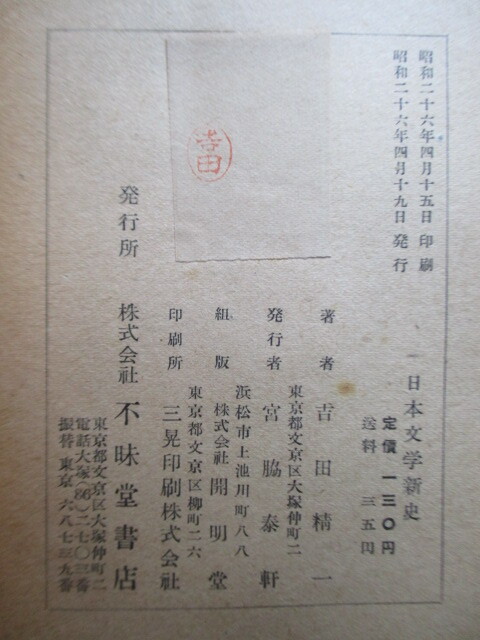 昭和二十六年四月十五日 印刷
昭和二十六年四月十九日 発行
日本文学新史
定価 一三〇円
送料 三五円
著者 吉田精一
東京都文京区大塚仲町二
発行者 宮脇泰軒
浜松市上池川町八八
組版 株式会社 開明堂
東京都文京区柳町二六
印刷所 三晃印刷株式会社
発行所 株式会社 不昧堂書店
東京都文京区大塚仲町二
電話大塚(86)二七〇三番
振替 東京 六八七三九番
吉田